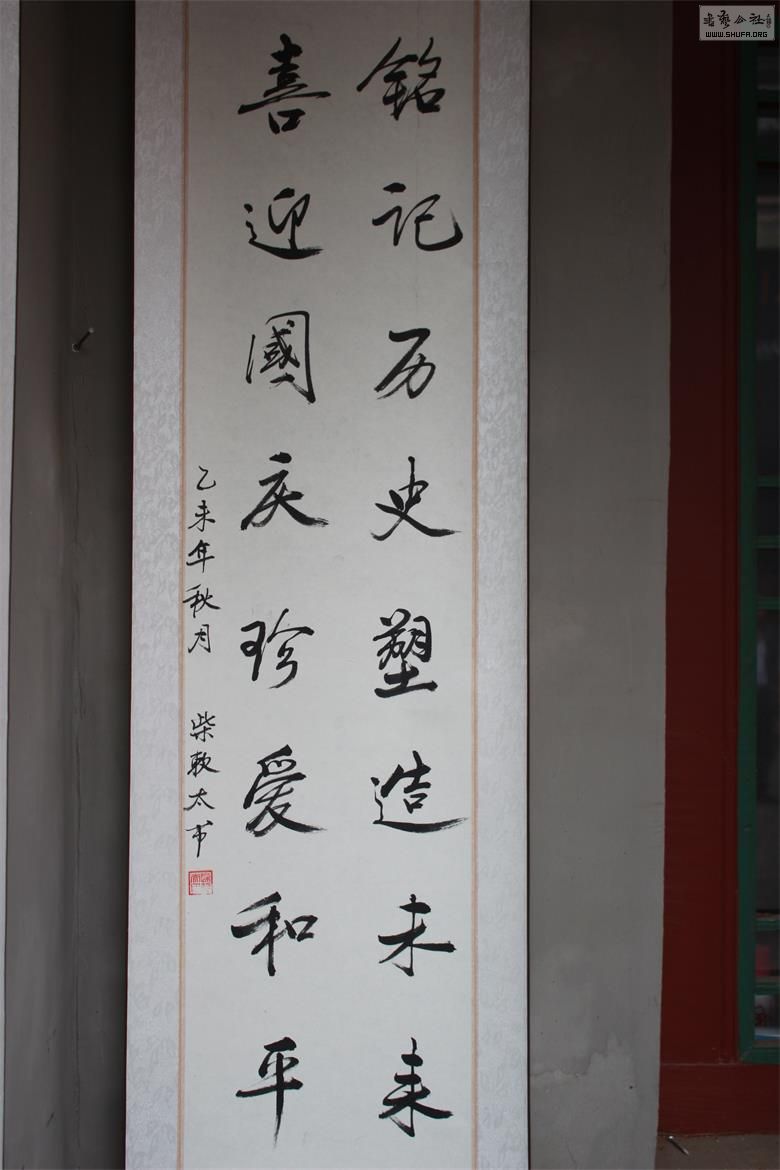 铭记历史塑造未来
喜迎國庆珍爱和平
乙未年秋月 柴敕太书
書艺公社
WWW.SHUFA.ORG